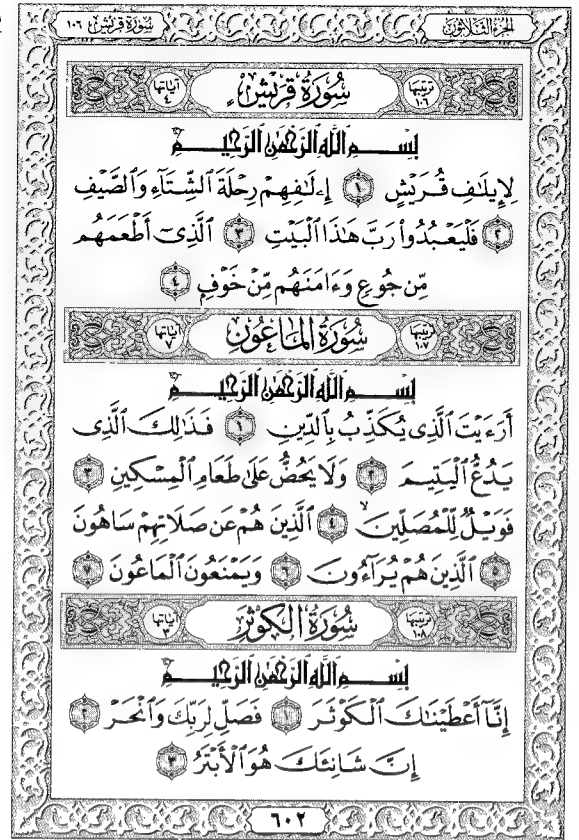 الجزء الثلاثون
سورة قريش ١٠٦
ترتيبها ١٠٦ سُورَةُ قُرَيْشٍ آياتها ٤
بِسْمِ ٱللَّهِ ٱلرَّحْمَٰنِ ٱلرَّحِيمِ
لِإِيلَٰفِ قُرَيْشٍ ١ إِۦلَٰفِهِمْ رِحْلَةَ ٱلشِّتَآءِ وَٱلصَّيْفِ
٢ فَلْيَعْبُدُوا۟ رَبَّ هَٰذَا ٱلْبَيْتِ ٣ ٱلَّذِىٓ أَطْعَمَهُم
مِّن جُوعٍ وَءَامَنَهُم مِّنْ خَوْفٍ ٤
ترتيبها ١٠٧ سُورَةُ المَاعُونِ آياتها ٧
بِسْمِ ٱللَّهِ ٱلرَّحْمَٰنِ ٱلرَّحِيمِ
أَرَءَيْتَ ٱلَّذِى يُكَذِّبُ بِٱلدِّينِ ١ فَذَٰلِكَ ٱلَّذِى
يَدُعُّ ٱلْيَتِيمَ ٢ وَلَا يَحُضُّ عَلَىٰ طَعَامِ ٱلْمِسْكِينِ ٣
فَوَيْلٌ لِّلْمُصَلِّينَ ۙ ٤ ٱلَّذِينَ هُمْ عَن صَلَاتِهِمْ سَاهُونَ
٥ ٱلَّذِينَ هُمْ يُرَآءُونَ ٦ وَيَمْنَعُونَ ٱلْمَاعُونَ ٧
ترتيبها ١٠٨ سُورَةُ الكَوْثَرِ آياتها ٣
بِسْمِ ٱللَّهِ ٱلرَّحْمَٰنِ ٱلرَّحِيمِ
إِنَّآ أَعْطَيْنَٰكَ ٱلْكَوْثَرَ ١ فَصَلِّ لِرَبِّكَ وَٱنْحَرْ ٢
إِنَّ شَانِئَكَ هُوَ ٱلْأَبْتَرُ ٣
٦٠٢